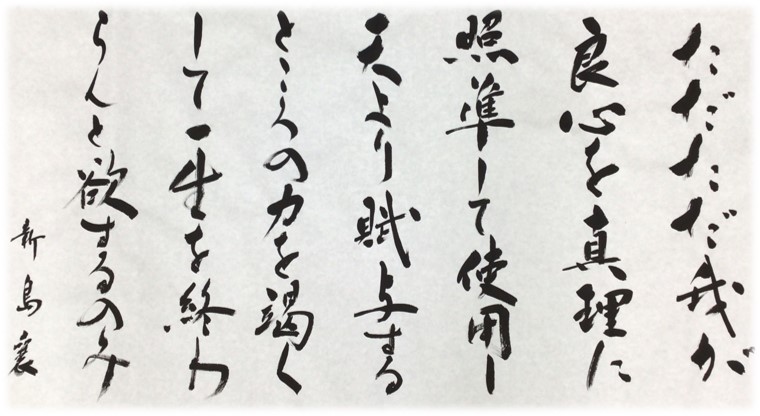 ただただ我が
良心を真理に
照準して使用し
天より賦与する
ところの力を竭く
して一生を終わ
らんと欲するのみ
新島襄